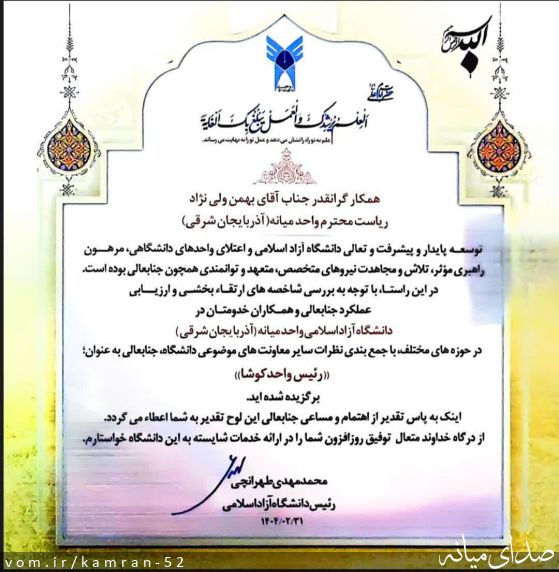 حضرت امام علی (ع)
العلم یرشدک والعمل یبلغ بک الغایة
علم به تو راه را نشان می دهد و عمل تو را به نهایت می رساند.
همکار گرانقدر جناب آقای بهمن ولی نژاد
ریاست محترم واحد میانه (آذربایجان شرقی)
توسعه پایدار و پیشرفت و تعالی دانشگاه آزاد اسلامی و اعتلای واحدهای دانشگاهی، مرهون
راهبری مؤثر، تلاش و مجاهدت نیروهای متخصص، متعهد و توانمندی همچون جنابعالی بوده است.
در این راستا، با توجه به بررسی شاخصه های ارتقاء بخشی و ارزیابی
عملکرد جنابعالی و همکاران خدومتان در
دانشگاه آزاد اسلامی واحد میانه (آذربایجان شرقی)
در حوزه های مختلف، با جمع بندی نظرات سایر معاونت های موضوعی دانشگاه، جنابعالی به عنوان؛
((رئیس واحد کوشا))
برگزیده شده اید.
اینک به پاس تقدیر از اهتمام و مساعی جنابعالی این لوح تقدیر به شما اعطاء می گردد.
از درگاه خداوند متعال توفیق روزافزون شما را در ارائه خدمات شایسته به این دانشگاه خواستارم.
محمدمهدی طهرانچی
رئیس دانشگاه آزاد اسلامی
۱۴۰۴/۰۲/۳۱
صدای میانه
vom.ir/kamran-52